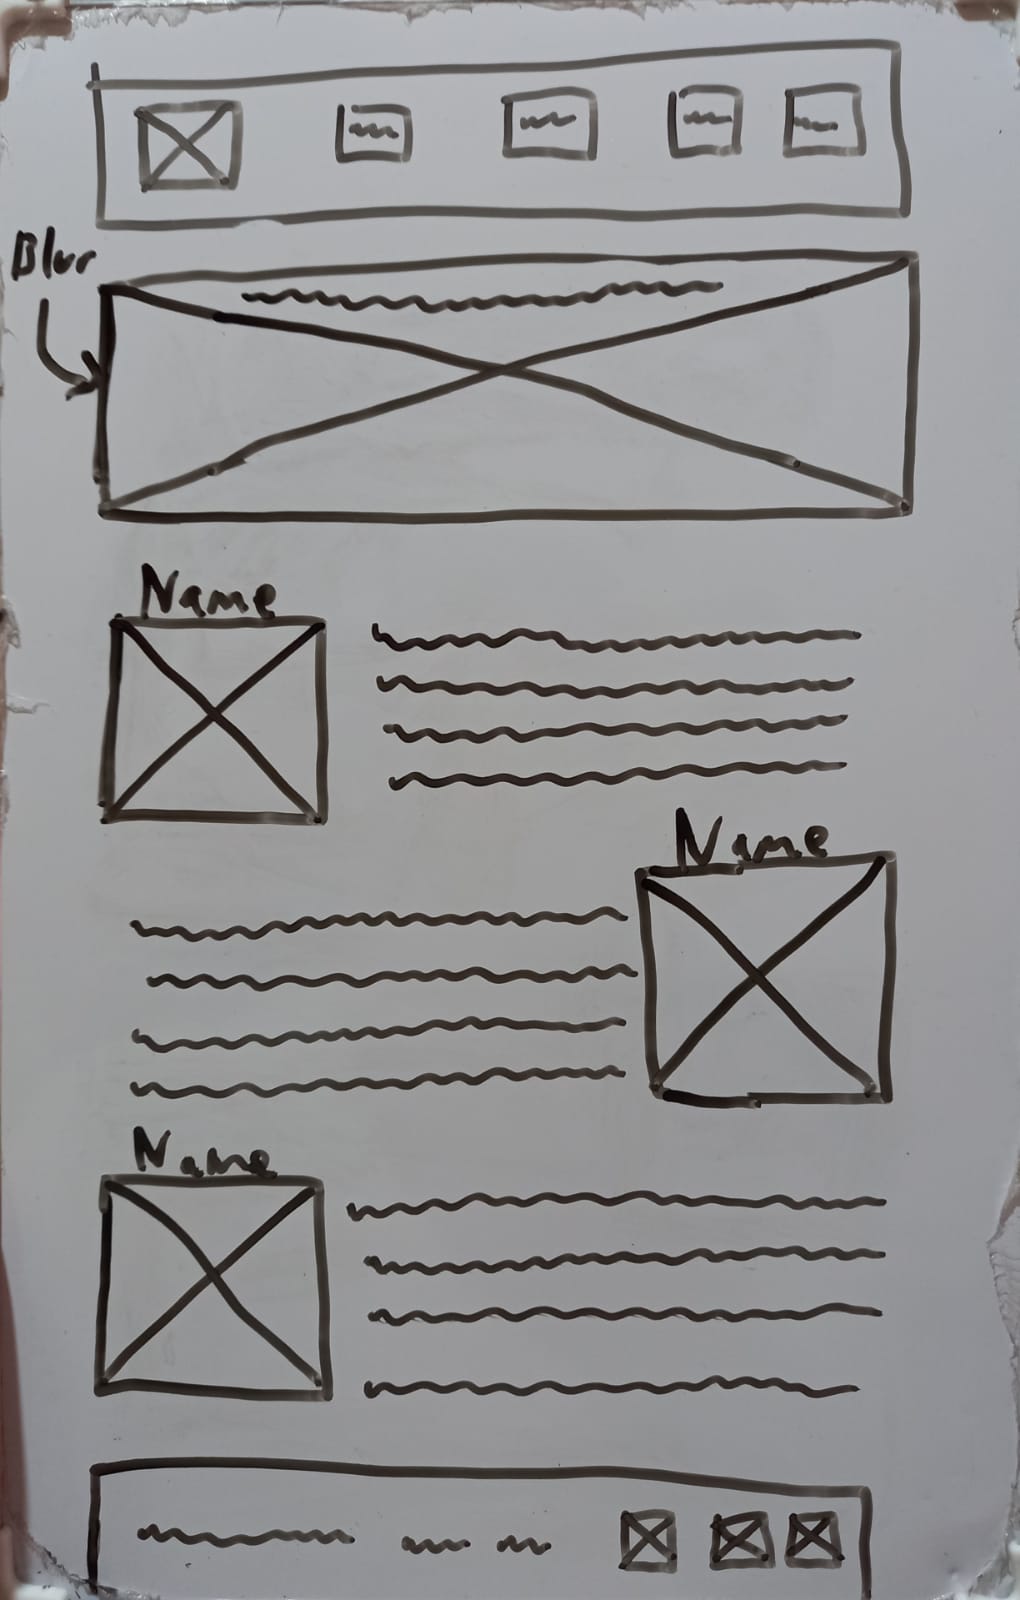 Blur
Name
Name
Name